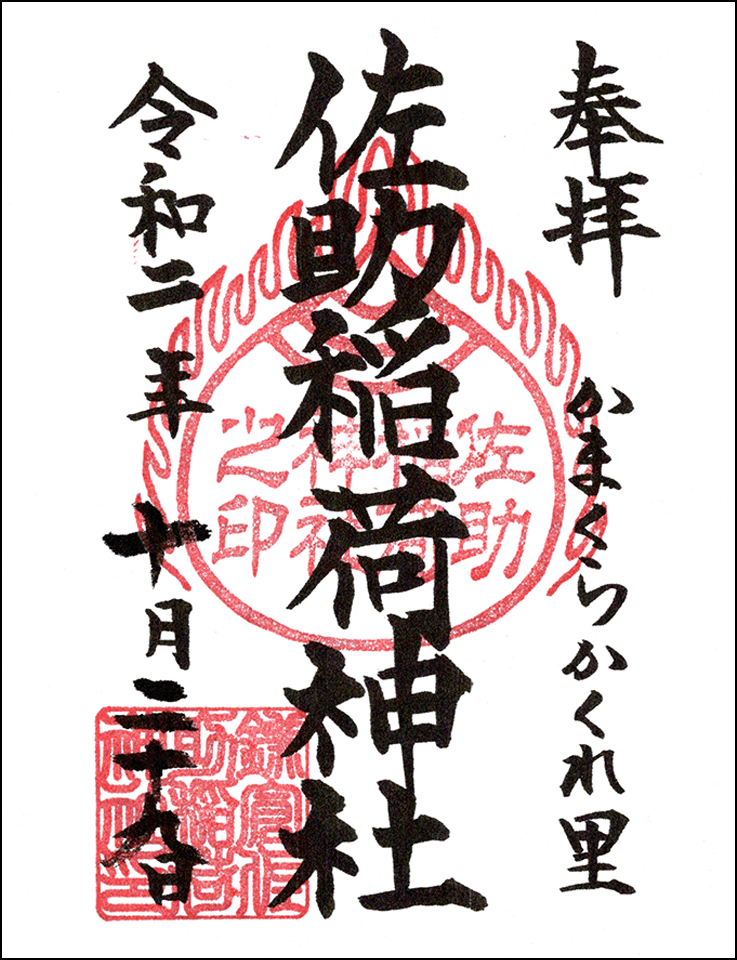 奉拝
かまくらかくれ里
佐助稲荷神社
令和二年十月二十九日
佐助稲荷神社之印